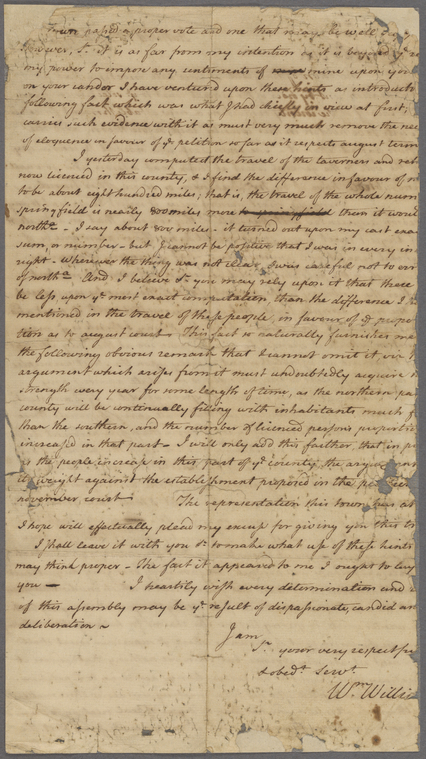 Town passed a proper vote and one that may be well d
However, Sr. it is as far from my intention as it is beyond ye
my power to impose any sentiments of mine upon you b
on your candor I have ventur'd upon these hints as introduct
following fact which was what I had chiefly in view at first,
carries such evidence with it as must very much remove the nec
of eloquence in favour of ye petition so far as it respects august term
I yesterday computed the travel of the taverners and ret
now licenced in this county, & I find the difference in favour of no
to be about eight hundred miles; that is, the travel of the whole num
Springfield is nearly 800 miles more to springfield than it woul
northn. - I say about 800 miles - it turned out upon my cast exa
sum, or number - but I cannot be positive that I was in every in
right - Wherever the thing was not clear I was careful not to err
of northn. And I believe Sr. you may rely upon it that there
be less upon ye most exact computation, than the difference I h
mentioned in the travel of these people in favour of ye propo
tion as to august court - This fact so naturally furnishes me
the following obvious remark that I cannot omit it, viz t
argument which arises from it must undoubtedly acquire
strength every year for some length of time, as the northern pa
county will be continually filling with inhabitants much f
than the southern, and the number of licenced persons proportio
increased in that part - I will only add this further, that in p
as the people increase in this part of ye county, the argument
its weight against the establishment proposed in the petition
november court The representation this town has at
I hope will effectually plead my excuse for giving you this tr
I shall leave it with you Sr. to make what use of these hints
may think proper - The fact it appeared to me I ought to lay
you - I heartily wish every determination and
of this assembly may be ye result of dispassionate, candid an
deliberation -
I am
Sr. your very respectfu
& obedt. Servt.
Wm. Willia